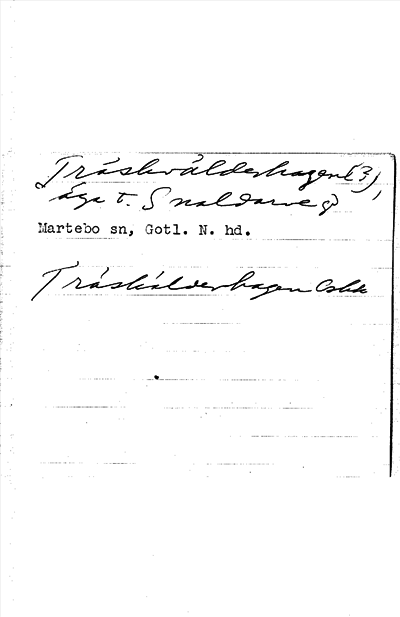 Träskvälderhagen (3),
äga t. Snoldarve g
Martebo sn, Gotl. N. hd.
Träskälderhagen Cshk